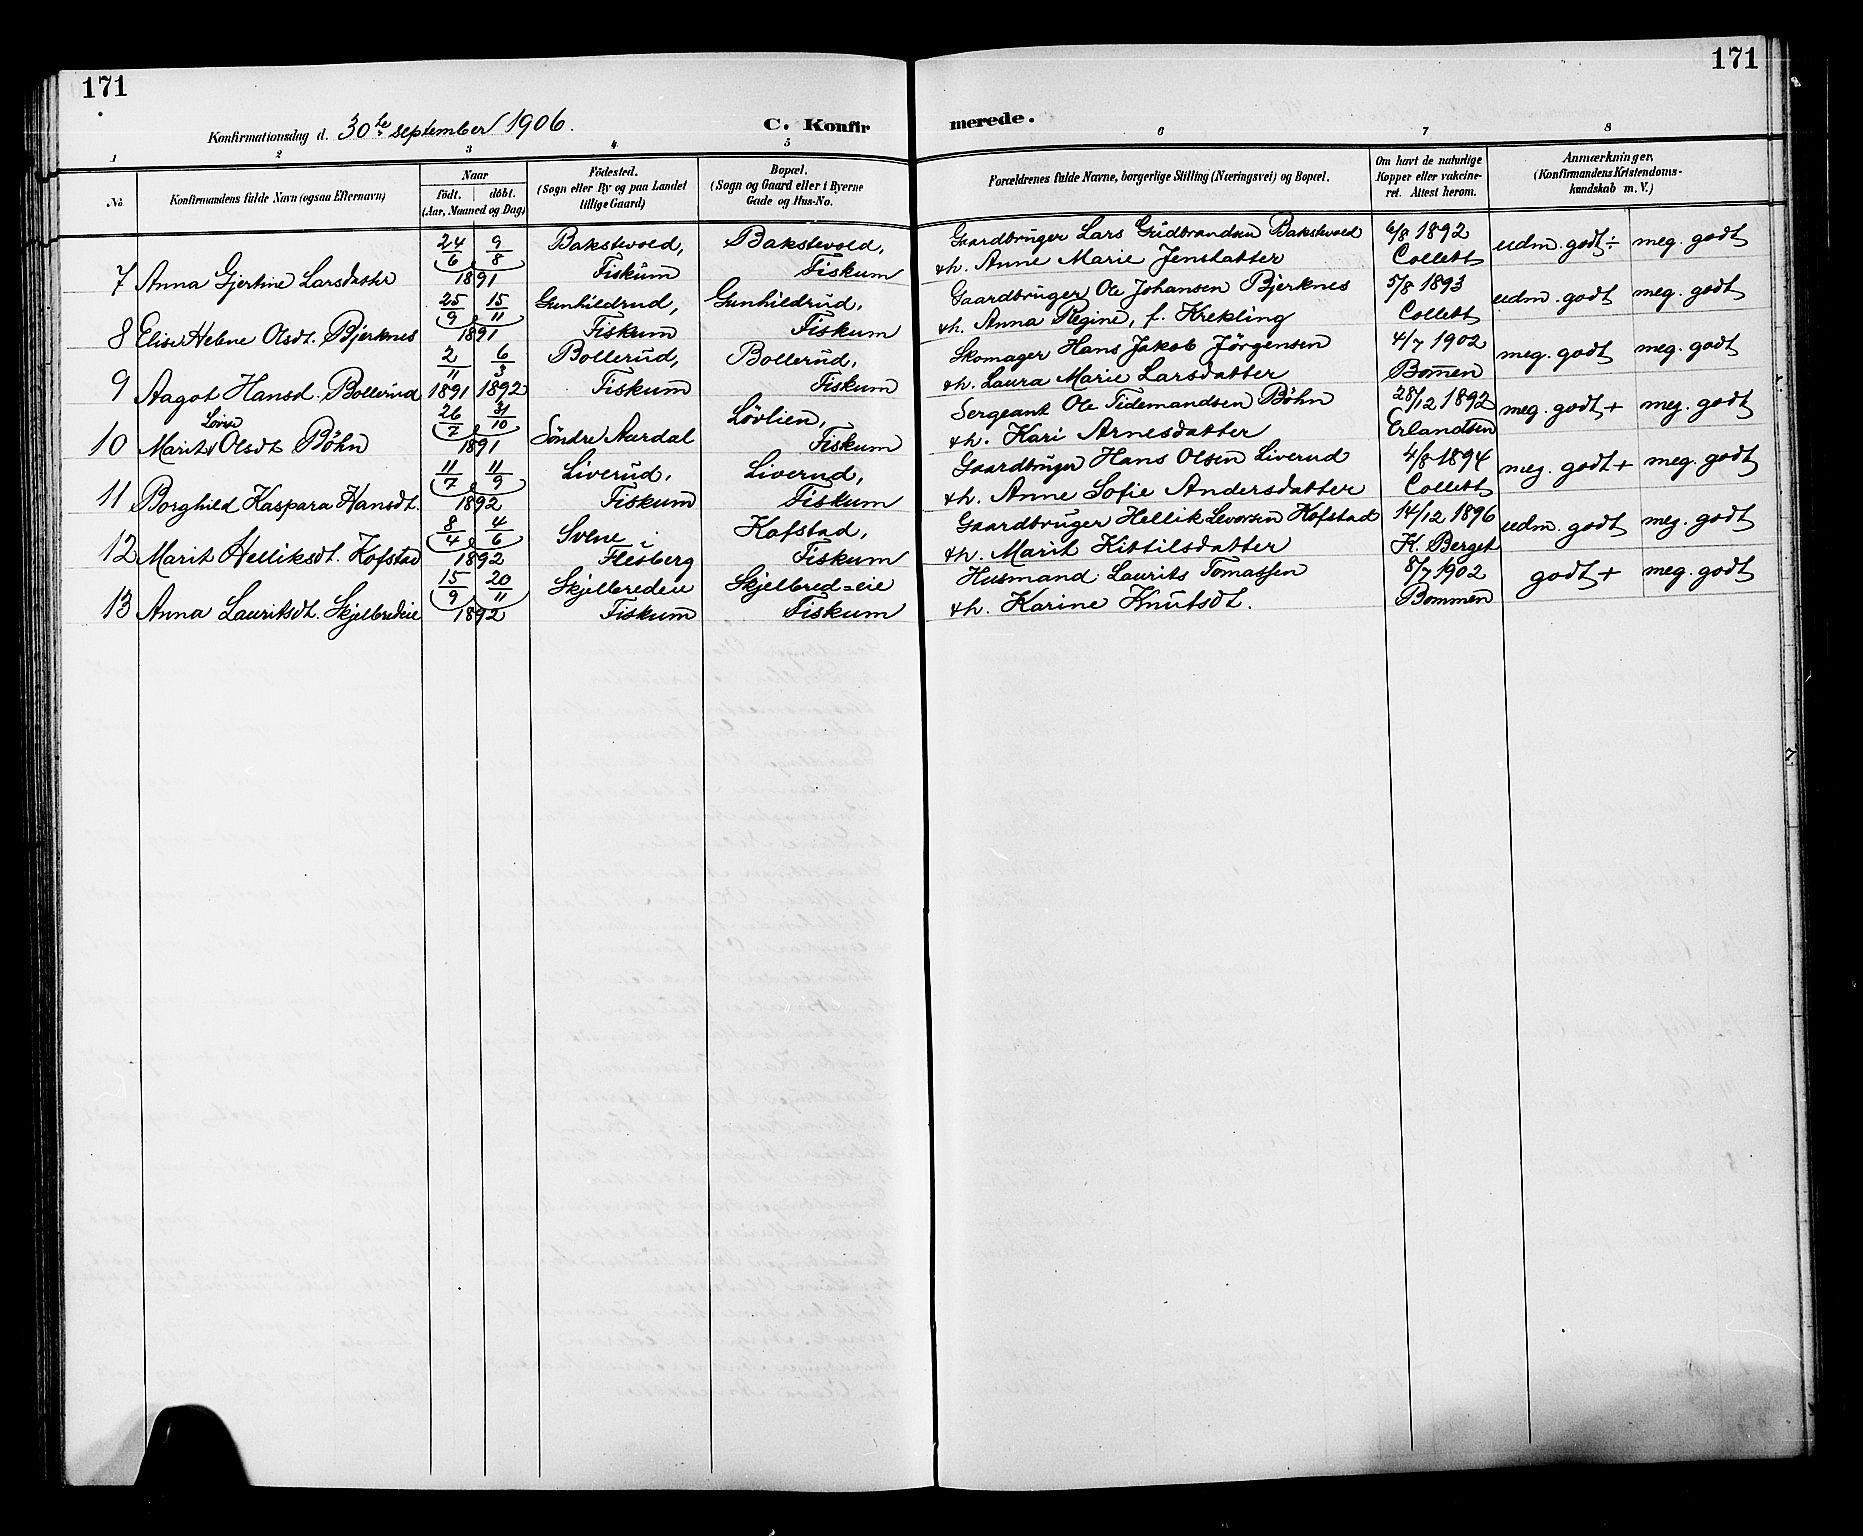 171
171
Konfirmationsdag d. 30te september 1906.
C. Konfir
merede.
1 2 3 4 5 6 7 8
No
Konfirmandens fulde Navn (ogsaa Efternavn)
Naar
födt. döbt.
(Aar, Maaned og Dag)
Födested.
(Sogn eller By og paa Landet
tillige Gaard)
Bopæl.
(Sogn og Gaard eller i Byerne
Gade og Hus-No.
Forældrenes fulde Navne, borgerlige Stilling (Næringsvei) og Bopæl.
Om havt de naturlige
Kopper eller vakcine-
ret. Attest herom.
Anmærkninger,
(Konfirmandens Kristendoms-
kundskab m. V.)
24/6 9/8 Bakstevold, Bakstevold, Gaardbruger Lars Guldbrandsen Bakstevold 6/8 1892 udm. godt ÷ meg. godt
7 Anna Gjertine Larsdatter 1891 Fiskum Fiskum & h. Anne Marie Jensdatter Collett
25/9 15/11 Gunhildrud, Gunhildrud, Gaardbruger Ole Johansen Bjerknes 5/8 1893 udm. godt meg. godt
8 Elise Helene Olsdt. Bjerknes 1891 Fiskum Fiskum & h. Anna Regine, f. Krekling Collett
2/11 6/3 Bollerud, Bollerud, Skomager Hans Jakob Jörgensen 4/7 1902 meg. godt meg. godt
9 Aagot Hansd. Bollerud 1891 1892 Fiskum Fiskum & h. Laura Marie Larsdatter Bomen
26/7 31/10 Lövlien, Sergeant Ole Tidemandsen Böhn 28/12 1892 meg. godt + meg. godt
10 Marit Olsdt Böhn 1891 Söndre Aurdal Fiskum & h. Kari Arnesdatter Erlandsen
11/7 11/9 Liverud, Liverud, Gaardbruger Hans Olsen Liverud 4/8 1894 meg. godt + meg. godt
11 Borghild Kaspara Hansdt. 1892 Fiskum Fiskum & h. Anne Sofie Andersdatter Collett
8/4 4/6 Svene Kofstad, Gaardbruger Hellik Leversen Kofstad 14/12 1896 udm. godt meg. godt
12 Marit Helliksdt. Kofstad 1892 Flesberg Fiskum & h. Marit Kittilsdatter K. Berget
15/9 20/11 Skjelbredeie Skjelbred=eie Husmand Laurits Tomassen 8/7 1902 godt + meg. godt
13 Anna Lauritsdt. Skjelbredeie 1892 Fiskum Fiskum & h. Karine Knutsdt. Bommen